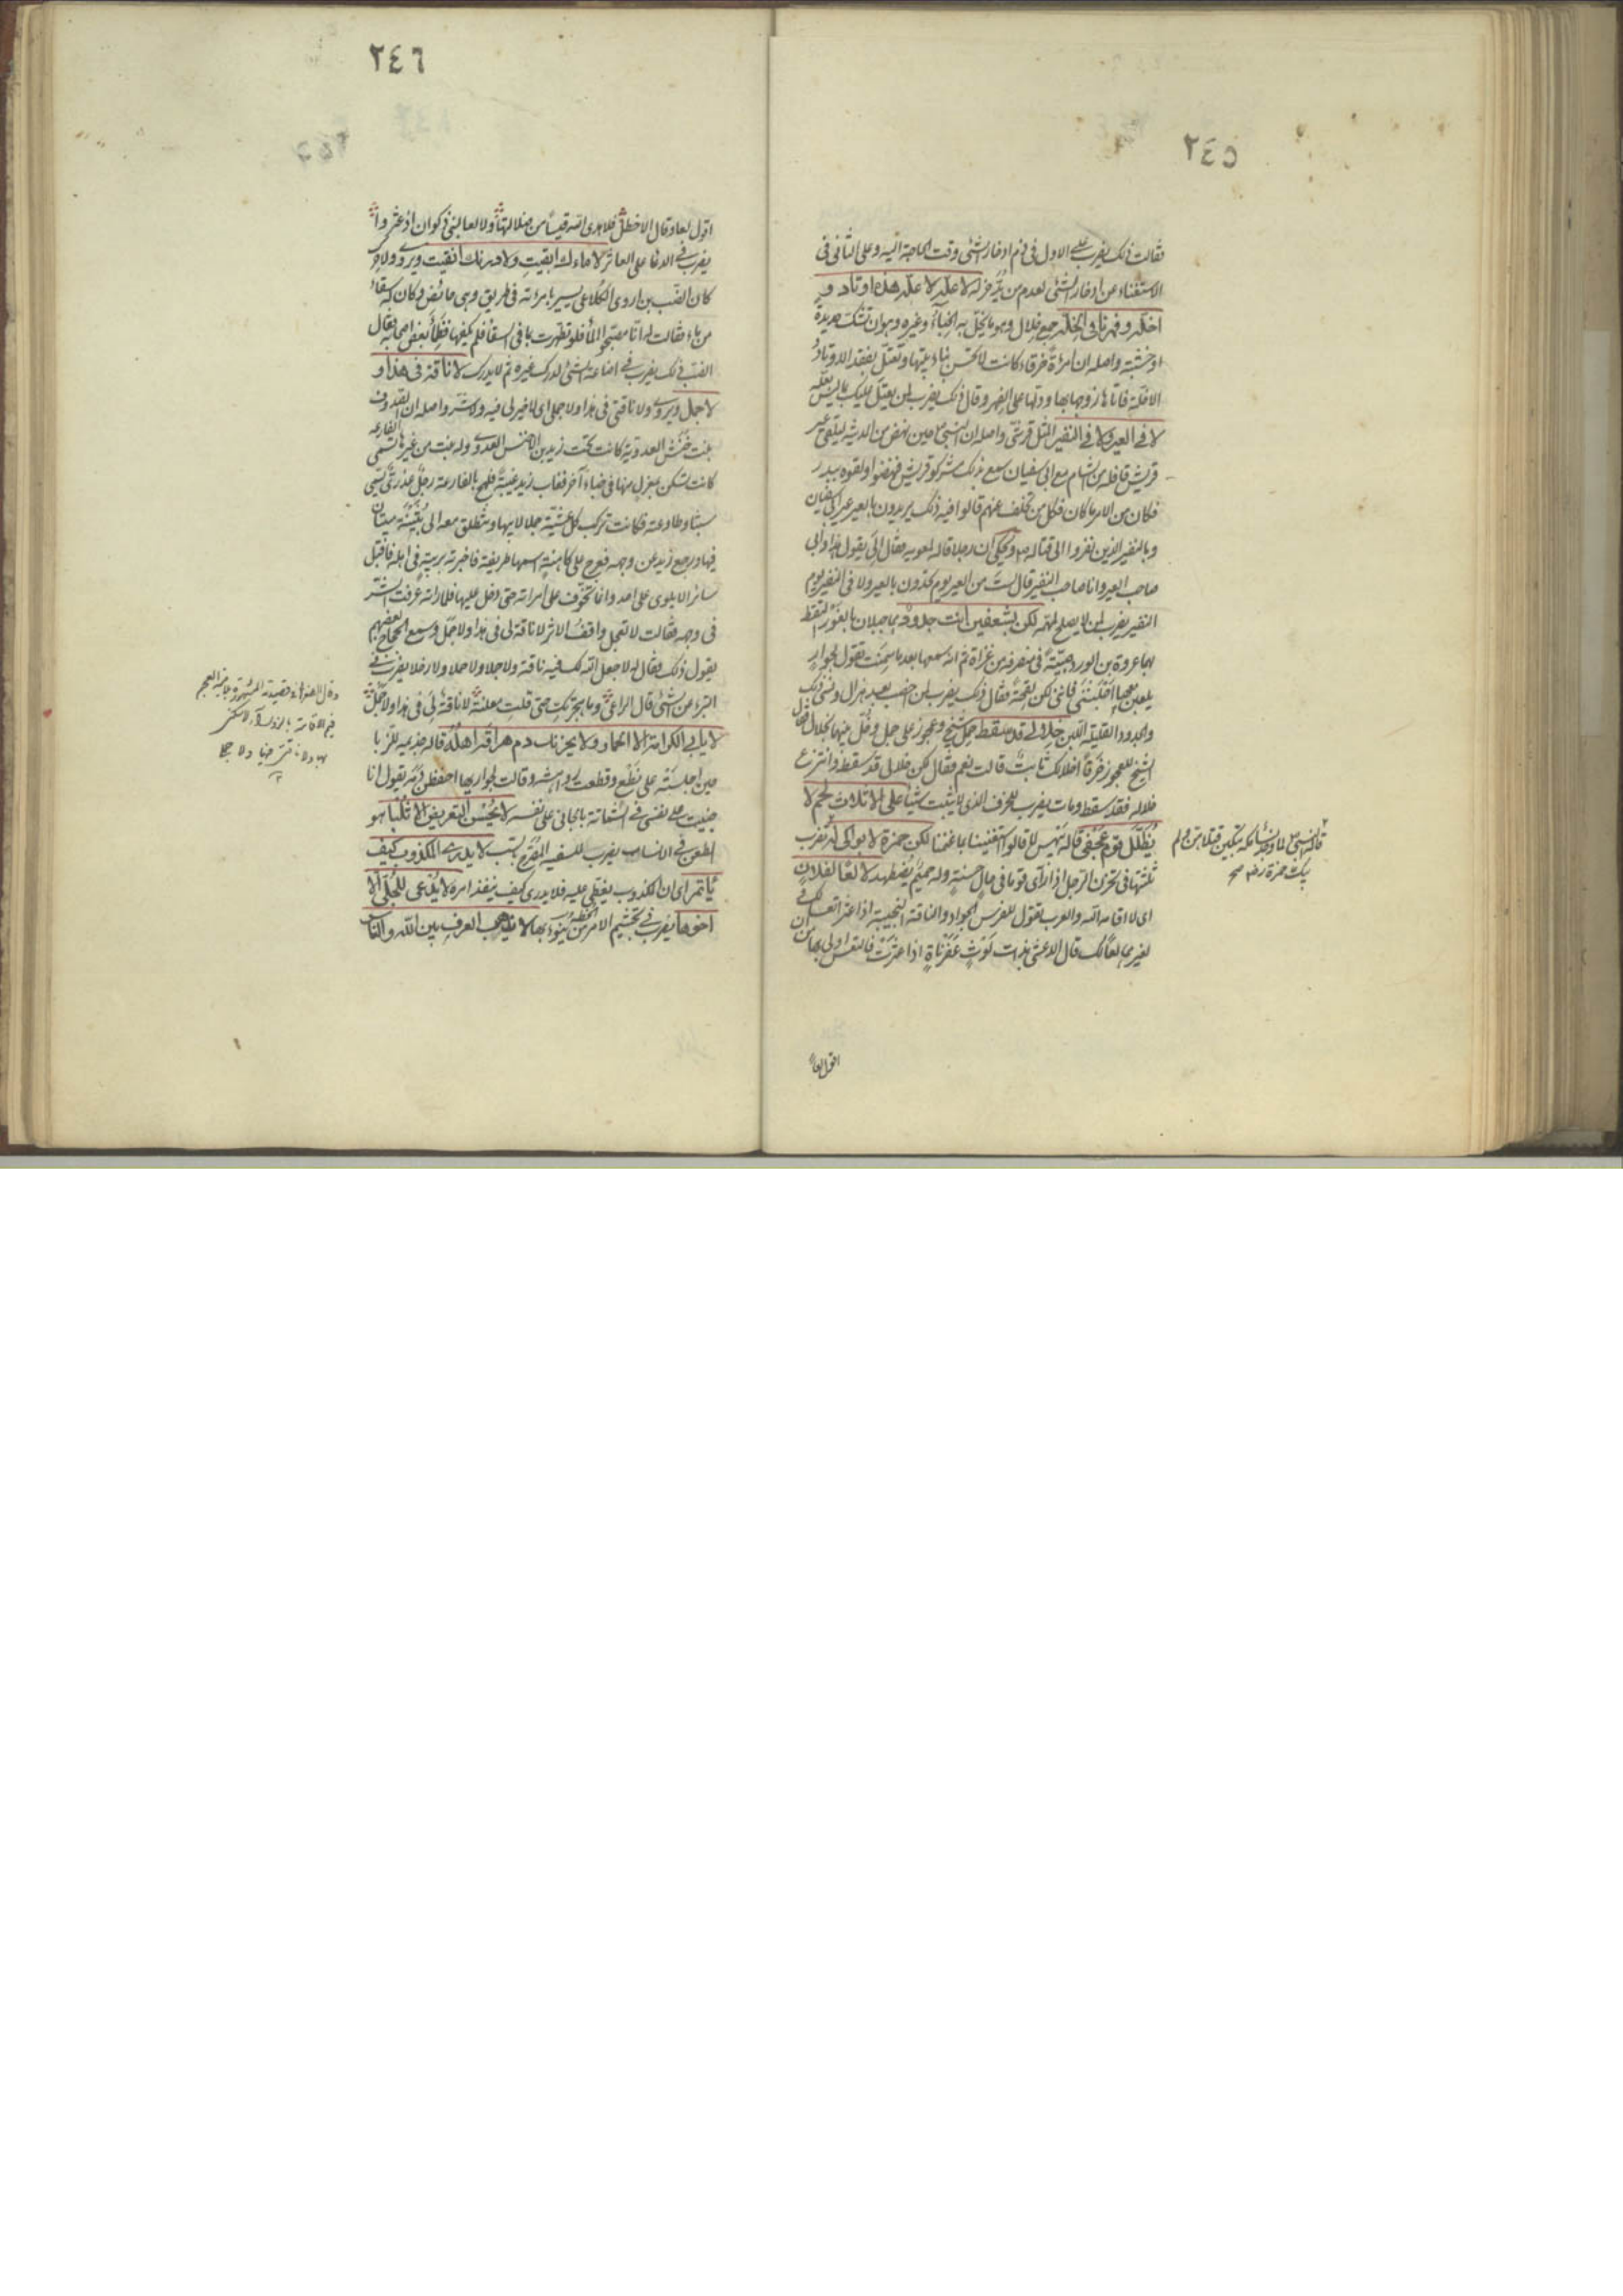 ٢٤٥
فقالت ذلك يضرب على الاول فى ذم ادخار الشئ وقت الحاجة اليه وعلى الثانى فى
الاستغناء عن ادخار الشئ لعدم من يدخر له لا علة لا علة هذه اوتاد و
اخلة وفهرنا فى الخلة جمع خلال وهو ما يخل به الخباء وغيره وهو ان تشك حديدة
او خشبة واصله ان امرأة خرقاء كانت لا تحسن بناء بيتها وتعتل بفقد الاوتاد
الاخلة فاتاها زوجها بها ودلها على الفهر وقال ذلك يضرب لمن يعتل عليك بما ليس بعلة
لا فى العير ولا فى النفير المثل قرشى واصله ان النبى حين نهض من المدينة ليتلقى عير
قريش قافلة من الشام مع ابى سفيان سمع بذلك مشركو قريش فنهضوا ولقوه ببدر
فكان من الامر ما كان فكل من تخلف عنهم قالوا فيه ذلك يريدون بالعير عير ابى سفيان
وبالنفير الذين نفروا الى قتاله ويحكى ان رجلا قاله لمعويه فقال الى يقول هذا وابى
صاحب العير وانا صاحب النفير قال لست من العير يوم يحدون بالعير ولا فى النفير يوم
النفير يضرب لمن لا يصلح لمهمة لكن بشعفين انت جدود هما جبلان بالغور التقط
بهما عروة بن الورد صبية فى منصرفه من غزاة ثم انه سمعها بعد ما سمنت تقول لجوار
يلعبن معها احلبننى فانى لكن لقحة فقال ذلك يضرب لمن اخصب بعد هزال ونسى ذلك
والجدود القليلة اللبن خلالى قد سقط حمل شيخ وعجوز على جمل وخل عنهما بخلال فقال
الشيخ للعجوز خرقا اخلالك ثابت قالت نعم فقال لكن خلالى قد سقط وانتزع
خلاله فقد سقط ومات يضرب للخرف الذى لا يثبت شيئا على الاتلاث لحم لا
يظلل قوم عجفى قاله بيهس لما قالوا استغنينا بما غنمنا لكن حمزة لا بواكى له يضرب
ثلثتها فى تحزن الرجل اذا رأى قوما فى حال حسنة وله حميم يضطهد لا لعا لفلان
اى لا اقامه الله والعرب تقول للفرس الجواد والناقة النجيبة اذا عثر لعا لك
لغيرهما لعا لك قال الاعشى بذات لوث عفرناة اذا عثرت فالتعس ادنى لها من ان
اقول لعا
قاله النبى لما وجد نساء مكة يبكين قتلاهن ولم
يبك حمزة رضه صح
٢٤٦
اقول لعا وقال الاخطل فلا هدى الله قيسا من ضلالتها ولا لعا لبنى ذكوان اذ عثروا
يضرب فى الدعا على العاثر لا ماءك ابقيت ولا درنك انقيت ويروى ولا حرك
كان الضب بن اروى الكلاعى يسير بامرأته فى طريق وهى حائض وكان له سقاء
من ماء فقالت له انا مصبحوا الماء فلو تطهرت بما فى السقاء فلم يكفها فظمأ بعض اصحابه فقال
الضب ذلك يضرب فى اضاعة الشئ لدرك غيره ثم لا يدرك لا ناقة فى هذا و
لا جمل ويروى ولا ناقتى فى هذا ولا جملى اى لا خير لى فيه ولا شر واصله ان الصدوف
بنت حنش العدوية كانت تحت زيد بن الاخنس العدوى وله بنت من غيرها تسمى الفارعه
كانت تسكن بمعزل منها فى خباء آخر فغاب زيد غيبة فلهج بالفارعة رجل عذرى يسمى
شبثا وطاوعته فكانت تركب كل عشية جملا لابيها وتنطلق معه الى ثنية يبيتان
فيها ورجع زيد عن وجهه فعرج على كاهنة اسمها طريفة فاخبرته بريبة فى اهله فاقبل
سائرا لا يلوى على احد وانما تخوف على امراته حتى دخل عليها فلما راته عرفت الشر
فى وجهه فقالت لا تعجل واقف الاثر لا ناقة لى فى هذا ولا جمل وسمع الحجاج بعضهم
يقول ذلك فقال له لا جعل الله لك فيه ناقة ولا جملا ولا حملا ولا رحلا يضرب فى
التبرء من الشئ قال الراعى وما هجرتك حتى قلت معلنة لا ناقة لى فى هذا ولا جمل
لا يابى الكرامة الا الحمار ولا يحزنك دم هراقه اهله قاله جذيمه للزبا
حين اجلسته على نطع وقطعت رواهشه وقالت لجواريها احفظن دمه يقول انا
جنيت على نفسى فى الشماتة بالجانى على نفسه لا يحسن التعريض الا ثلبا هو
الطعن فى الانساب يضرب للسفيه المقزع بسب لا يدرى الكذوب كيف
ياتمر اى ان الكذوب يغطى عليه فلا يدرى كيف ينفذ امره لا يدعى للجلى الا
اخوها يضرب فى تجشيم الامر من الخطة ينوء بها لا يذهب العرف بين الله والناس
فيم الاقامة بالزوراء لا سكنى
بها ولا ناقتى فيها ولا جملى